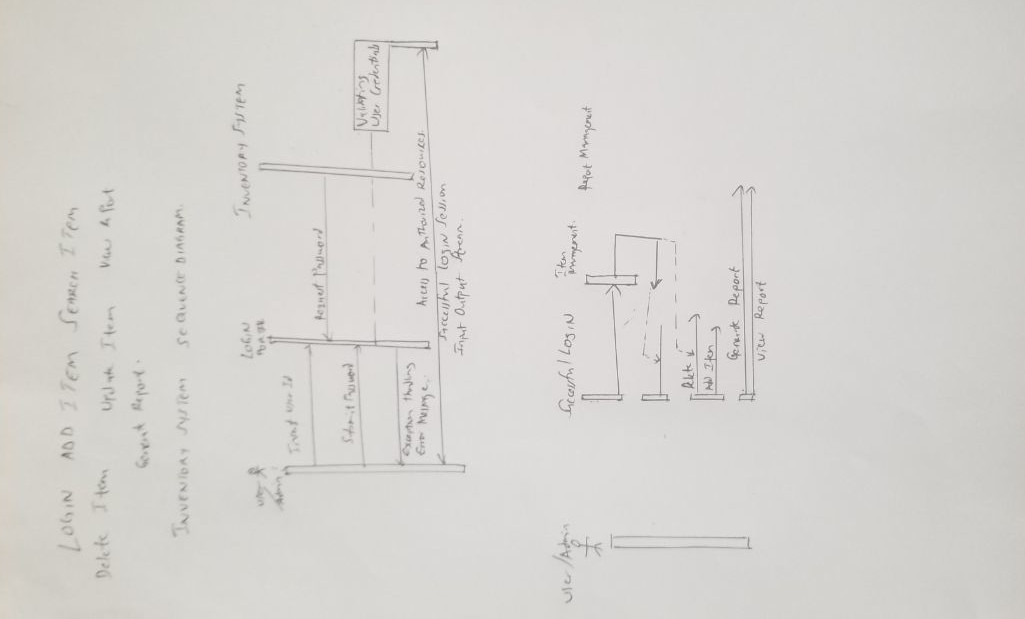 LOGIN ADD ITEM SEARCH ITEM
Delete Item Update Item View Report
Generat Report.
INVENTORY SYSTEM SEQUENCE DIAGRAM.
User
Admin
LOGIN
INVENTORY SYSTEM
Input User Id
Request Password
Submit Password
Validating
User Credentials
Exception Handling
Error Message.
Access to Authorized Resources.
Successful Login Session
Input Output Stream.
User/Admin
Successful LOGIN
Item
Management.
Report Management
Delete
Add Item
Generate Report
View Report